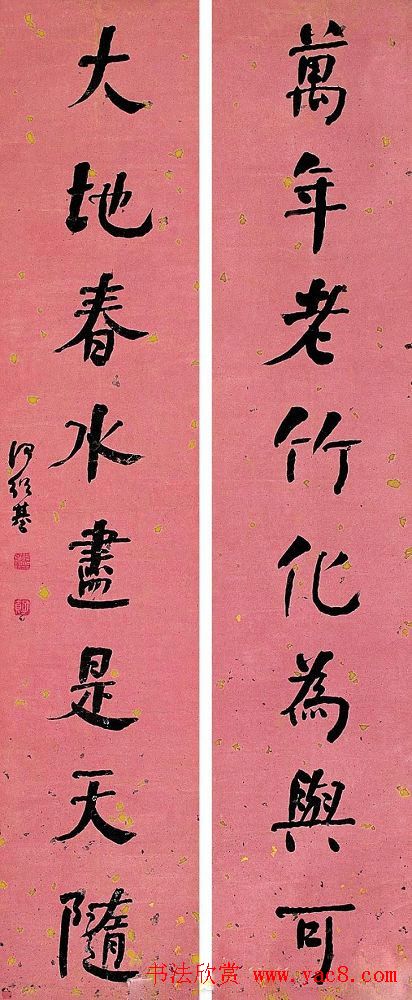 萬年老竹化為與可
大地春水盡是天隨
何紹基
书法欣赏 www.yac8.com